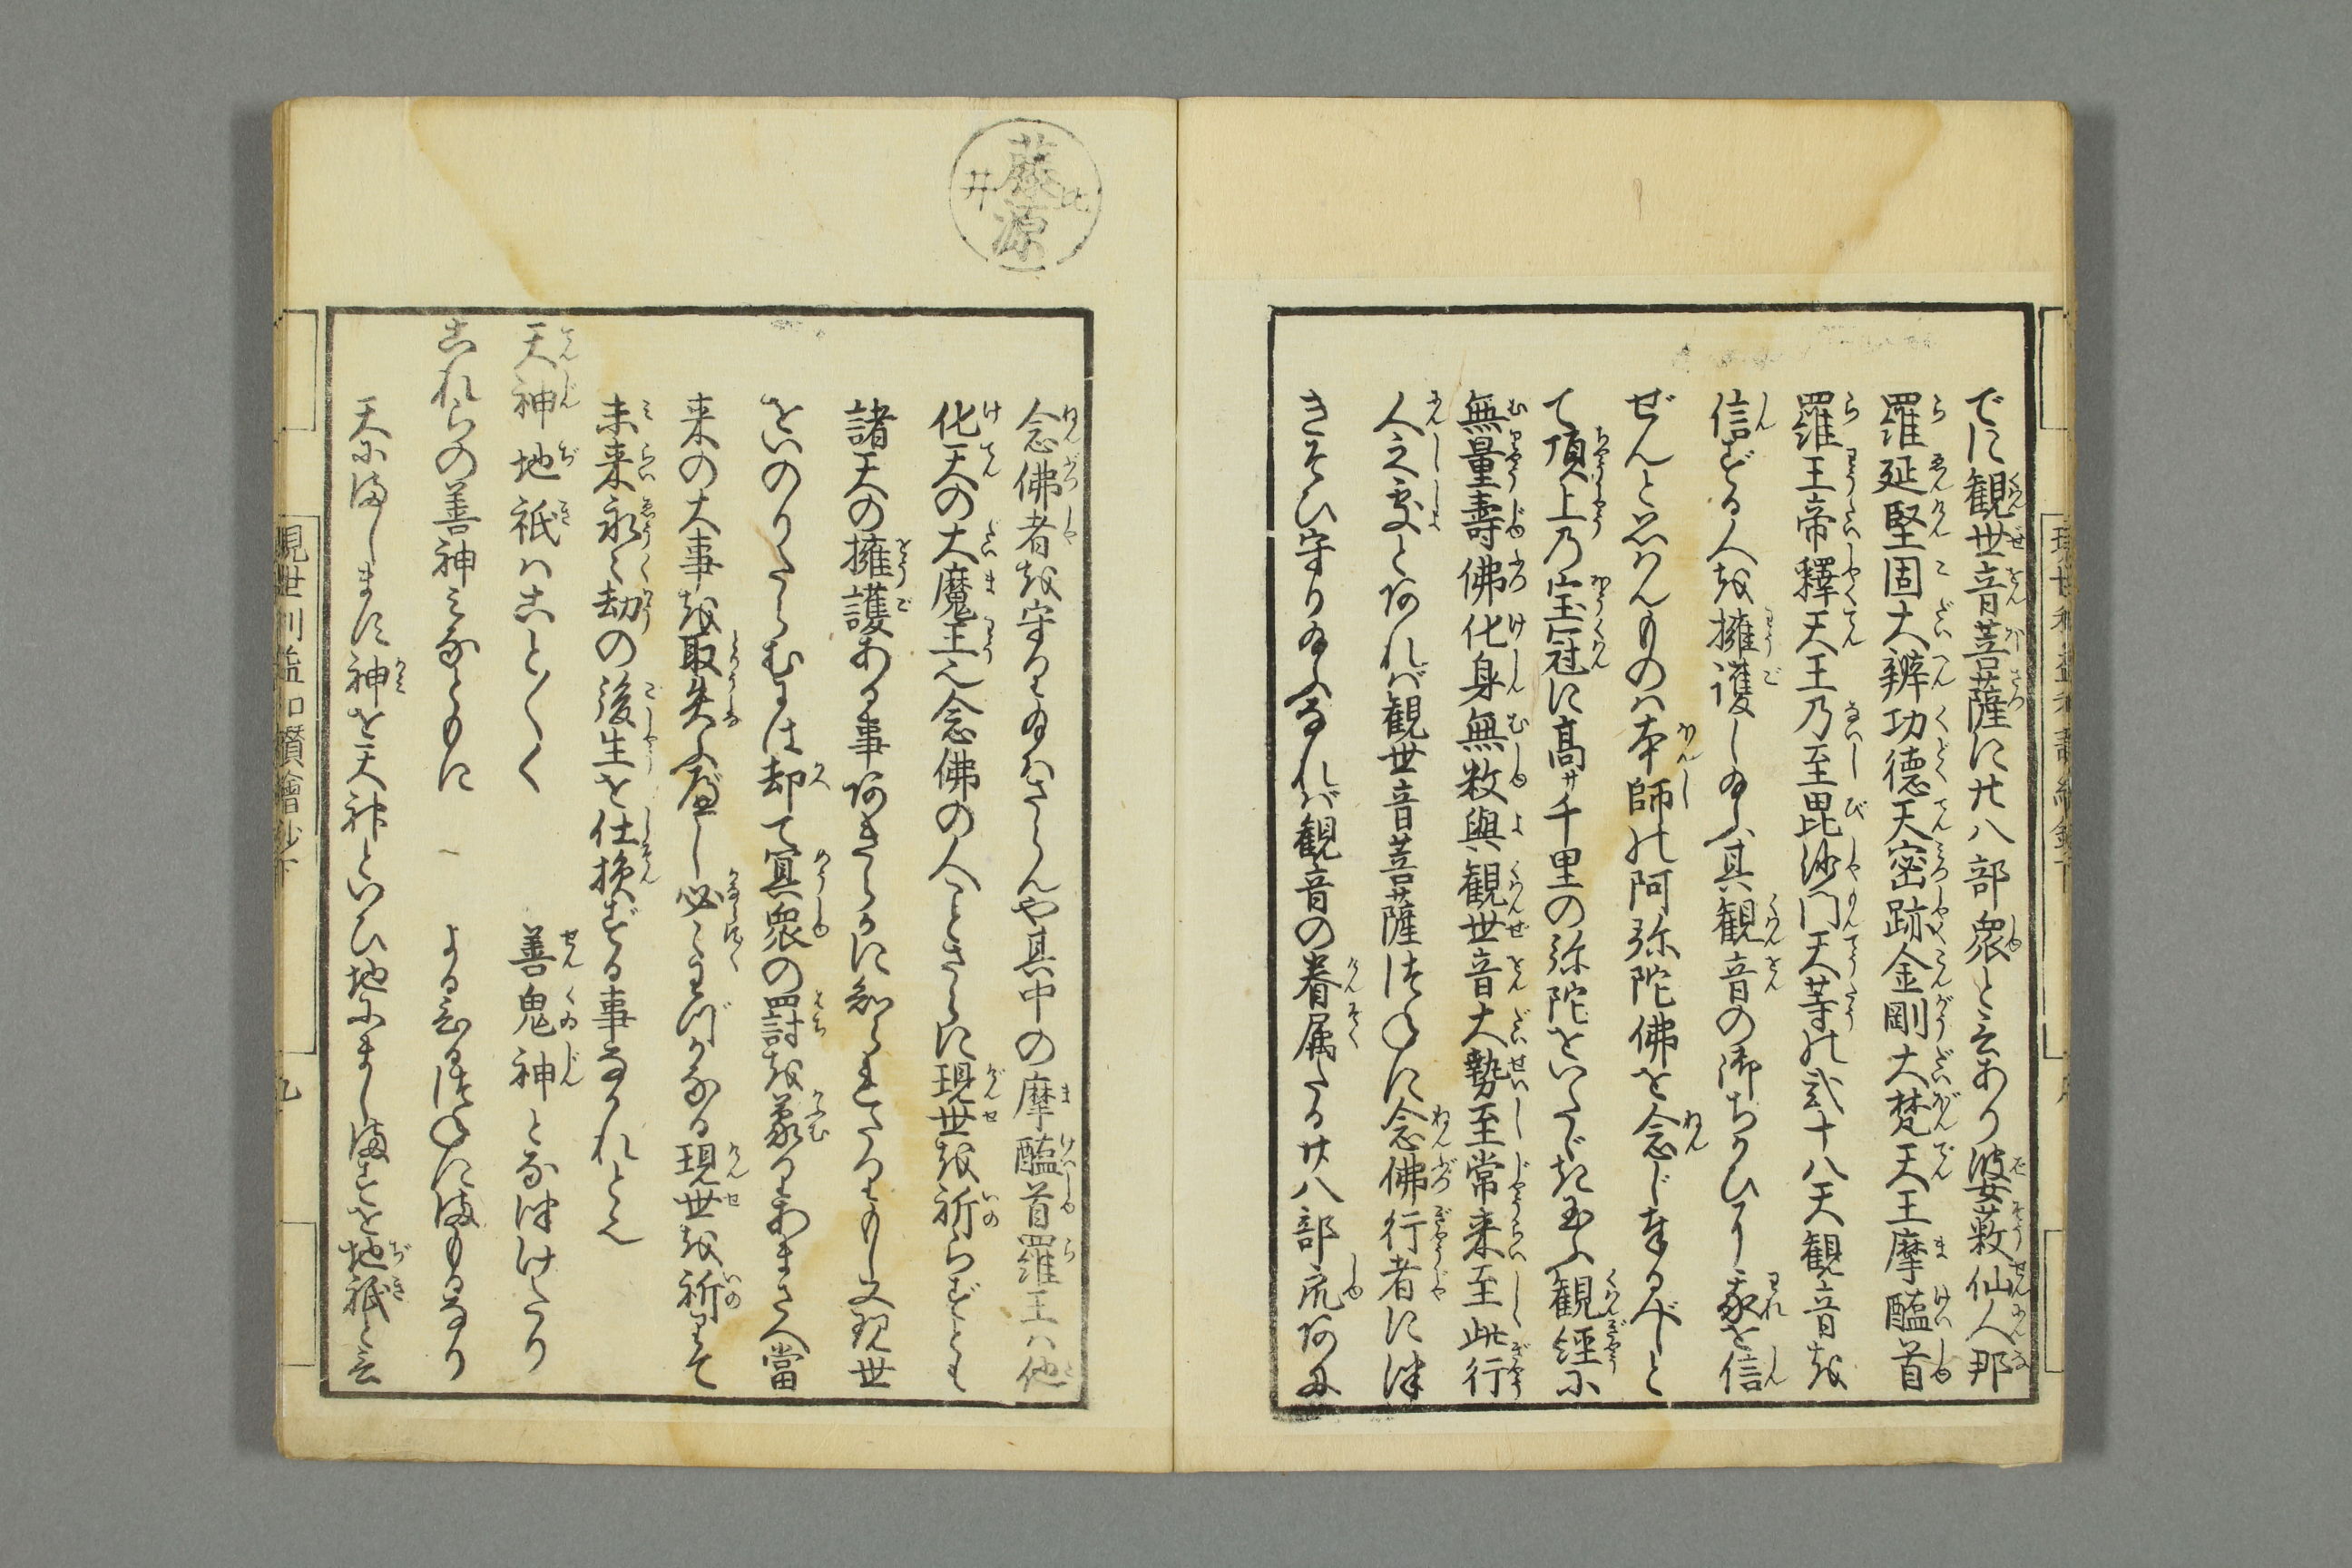 でに観世音菩薩に廿八部衆と云あり婆薮仙人那
羅延堅固大辨功徳天密跡金剛大梵天王摩醯首
羅王帝釋天王乃至毘沙門天等の弐十八天観音を
信ずる人を擁護し給ふ其観音の御ちかひに我を信
ぜんと思はんものは本師の阿弥陀佛を念じ奉るべしと
て頂上乃宝冠に高サ千里の弥陀をいたゞき玉ふ観經に
無量壽佛化身無数與観世音大勢至常来至此行
人之處とあれば観世音菩薩つねに念佛行者につ
きそひ守り給ふなれば観音の眷属たる廿八部衆あに
念佛者を守り給はざらんや其中の摩醯首羅王は他
化天の大魔王也念佛の人ことさらに現世を祈らずとも
諸天の擁護ある事あきらかに知られたりもし又現世
をいのりたらむには却て冥衆の罸を蒙りあまさへ當
来の大事を取失ふべし必〻わづかなる現世を祈りて
未来永〻劫の後生を仕損ずる事なかれと也
天神地祇はこと〴〵く 善鬼神となづけたり
これらの善神みなともに よるひるつねにまもるなり
天にましますに神を天神といひ地にましますを地祇と云
藤源
比
井
現世利益和讃繪鈔下
九